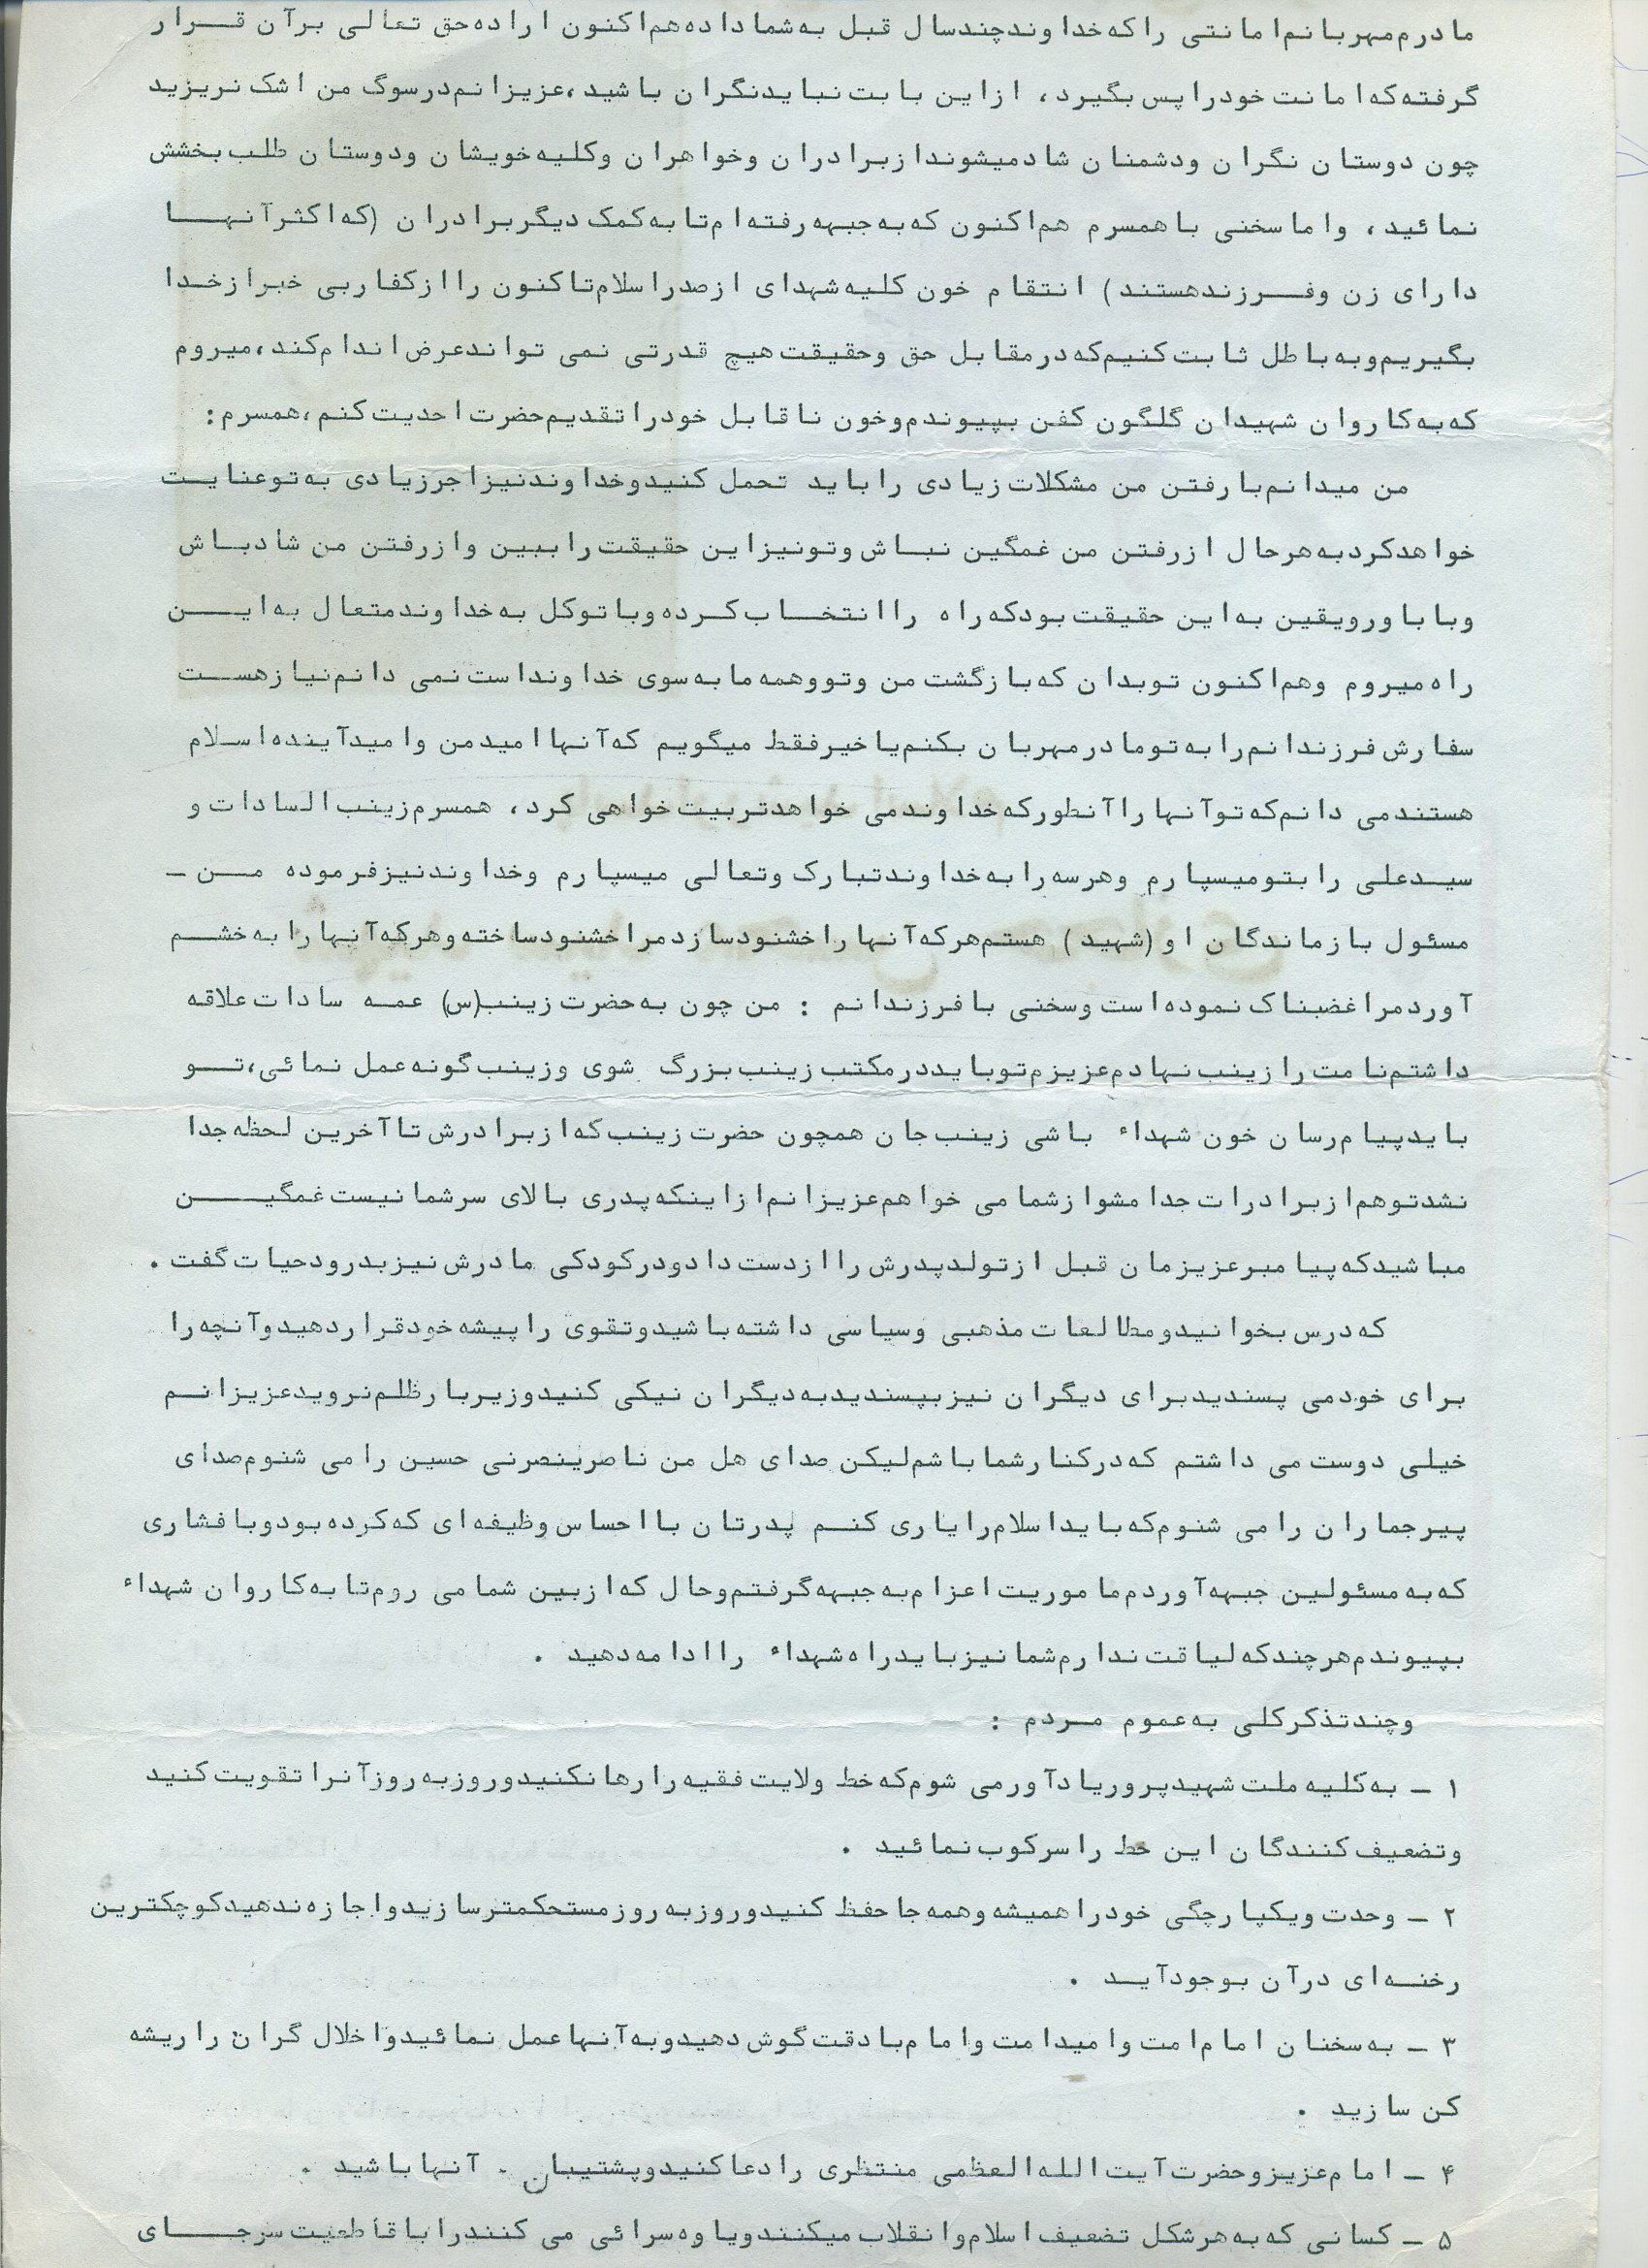 مادرم مهربانم امانتی را که خداوند چند سال قبل به شما داده هم اکنون اراده حق تعالی بر آن قرار
گرفته که امانت خود را پس بگیرد، از این بابت نباید نگران باشید، عزیزانم در سوگ من اشک نریزید
چون دوستان نگران و دشمنان شاد میشوند از برادران و خواهران و کلیه خویشان و دوستان طلب بخشش
نمائید، و اما سخنی با همسرم هم اکنون که به جبهه رفته ام تا به کمک دیگر برادران (که اکثر آنها
دارای زن و فرزند هستند) انتقام خون کلیه شهدای از صدر اسلام تا کنون را از کفار بی خبر از خدا
بگیریم و به باطل ثابت کنیم که در مقابل حق و حقیقت هیچ قدرتی نمی تواند عرض اندام کند، میروم
که به کاروان شهیدان گلگون کفن بپیوندم و خون ناقابل خود را تقدیم حضرت احدیت کنم، همسرم:
من میدانم با رفتن من مشکلات زیادی را باید تحمل کنید و خداوند نیز اجر زیادی به تو عنایت
خواهد کرد به هر حال از رفتن من غمگین نباش و تو نیز این حقیقت را ببین و از رفتن من شاد باش
و با باور و یقین به این حقیقت بود که راه را انتخاب کرده و با توکل به خداوند متعال به این
راه میروم و هم اکنون تو بدان که بازگشت من و تو و همه ما به سوی خداوند است نمی دانم نیاز هست
سفارش فرزندانم را به تو مادر مهربان بکنم یا خیر فقط میگویم که آنها امید من و امید آینده اسلام
هستند می دانم که تو آنها را آنطور که خداوند می خواهد تربیت خواهی کرد، همسرم زینب السادات و
سید علی را بتو میسپارم و هر سه را به خداوند تبارک و تعالی میسپارم و خداوند نیز فرموده من -
مسئول بازماندگان او (شهید) هستم هر که آنها را خشنود سازد مرا خشنود ساخته و هر که آنها را به خشم
آورد مرا غضبناک نموده است و سخنی با فرزندانم : من چون به حضرت زینب (س) عمه سادات علاقه
داشتم نامت را زینب نهادم عزیزم تو باید در مکتب زینب بزرگ شوی و زینب گونه عمل نمائی، تو
باید پیام رسان خون شهداء باشی زینب جان همچون حضرت زینب که از برادرش تا آخرین لحظه جدا
نشد تو هم از برادرات جدا مشو از شما می خواهم عزیزانم از اینکه پدری بالای سر شما نیست غمگین
مباشید که پیامبر عزیزمان قبل از تولد پدرش را از دست داد و در کودکی مادرش نیز بدرود حیات گفت .
که درس بخوانید و مطالعات مذهبی و سیاسی داشته باشید و تقوی را پیشه خود قرار دهید و آنچه را
برای خود می پسندید برای دیگران نیز بپسندید به دیگران نیکی کنید و زیر بار ظلم نروید عزیزانم
خیلی دوست می داشتم که در کنار شما باشم لیکن صدای هل من ناصر ینصرنی حسین را می شنوم صدای
پیر جماران را می شنوم که باید اسلام را یاری کنم پدرتان با احساس وظیفه ای که کرده بود و با فشاری
که به مسئولین جبهه آوردم ماموریت اعزام به جبهه گرفتم و حال که از بین شما می روم تا به کاروان شهداء
بپیوندم هر چند که لیاقت ندارم شما نیز باید راه شهداء را ادامه دهید .
و چند تذکر کلی به عموم مردم :
۱ - به کلیه ملت شهید پرور یادآور می شوم که خط ولایت فقیه را رها نکنید و روز به روز آنرا تقویت کنید
و تضعیف کنندگان این خط را سرکوب نمائید .
۲ - وحدت و یکپارچگی خود را همیشه و همه جا حفظ کنید و روز به روز مستحکمتر سازید و اجازه ندهید کوچکترین
رخنه ای در آن بوجود آید .
۳ - به سخنان امام امت و امید امت و امام با دقت گوش دهید و به آنها عمل نمائید و اخلال گران را ریشه
کن سازید .
۴ - امام عزیز و حضرت آیت الله العظمی منتظری را دعا کنید و پشتیبان . آنها باشید .
۵ - کسانی که به هر شکل تضعیف اسلام و انقلاب میکنند و یاوه سرائی می کنند را با قاطعیت سر جای